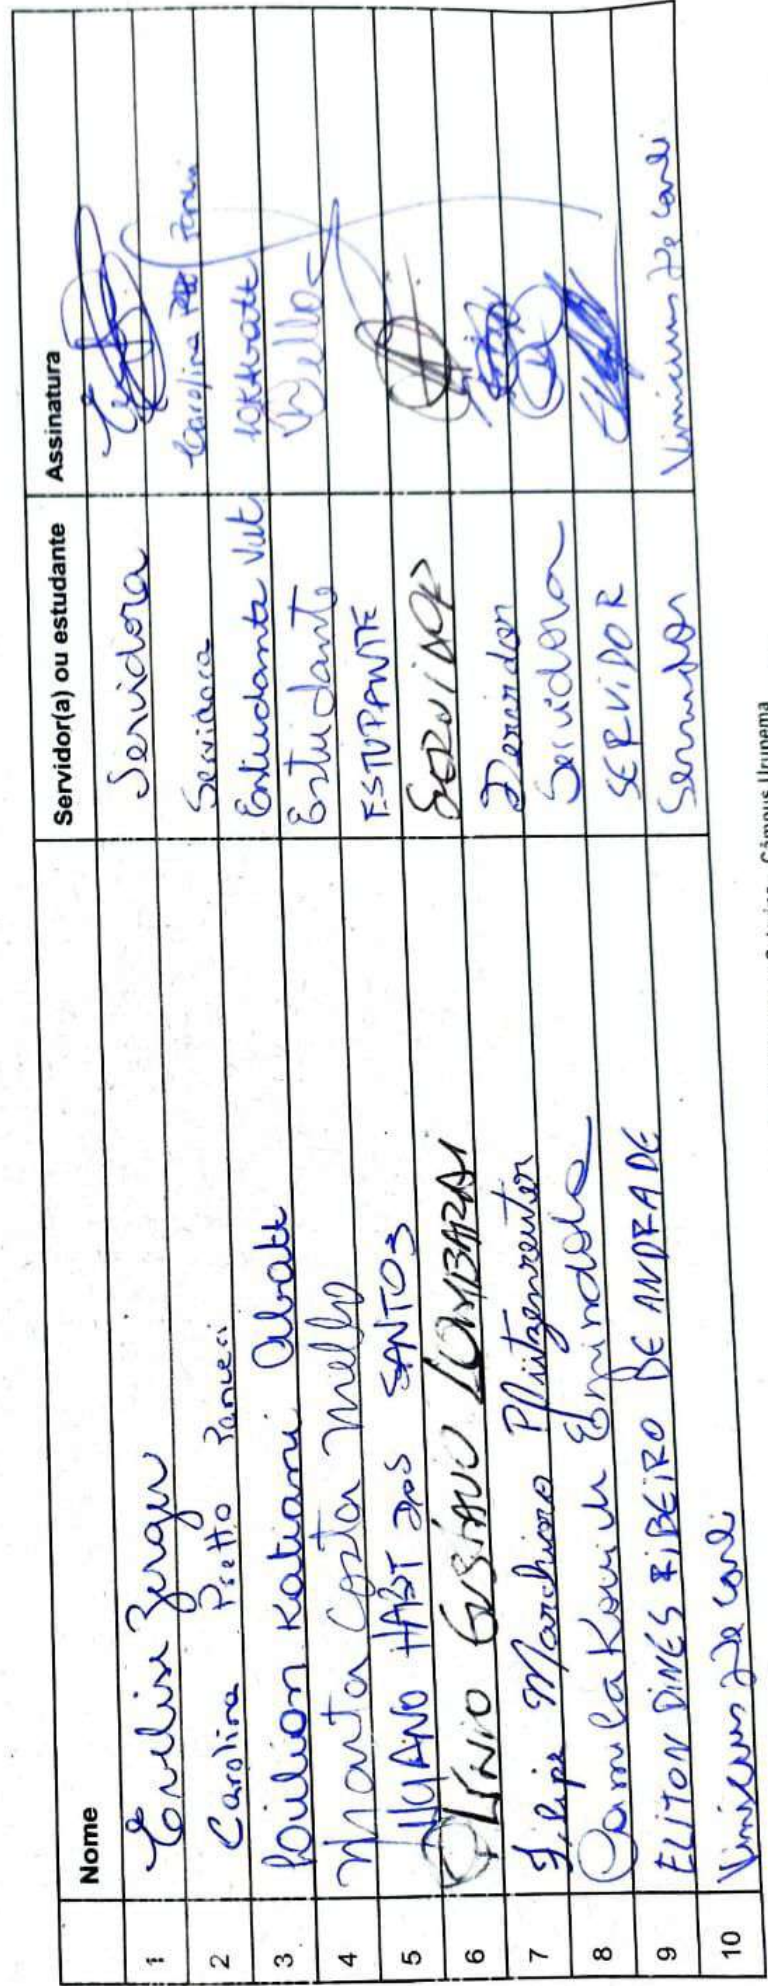 Nome Servidor(a) ou estudante Assinatura
1 Evelise Zerger Servidora
2 Carolina Pretto Panceri Servidora Carolina Panceri
3 Katiani Abatt Estudante
4 Marta Costa Mello Estudante Mello
5 HART DOS SANTOS ESTUDANTE
6 PLÍNIO GUSTAVO LOMBARDI SERVIDOR
7 Filipe Marchioro Pfützenreuter Servidor
8 Camila Koerich Espindola Servidora
9 ELITON PIRES RIBEIRO DE ANDRADE SERVIDOR
10 Vinicius De Carli Servidor Vinicius De Carli
Câmpus Urupema